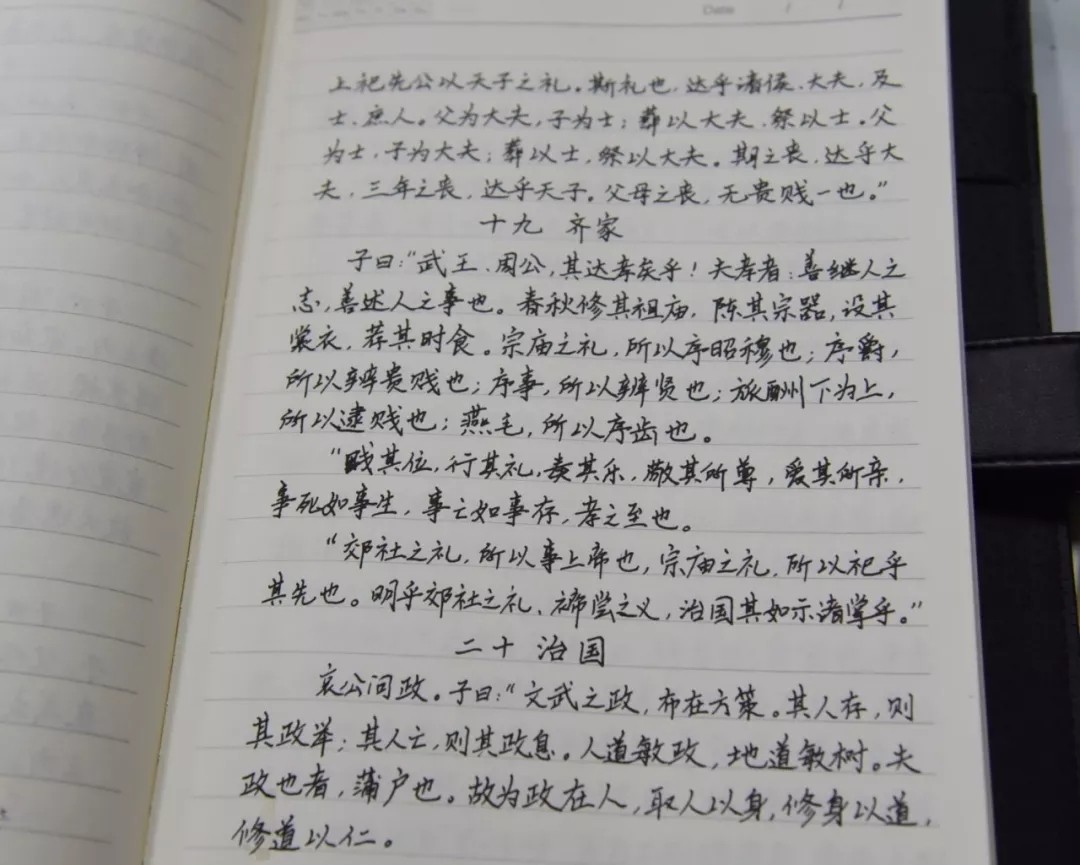 Date / /
上祀先公以天子之礼。斯礼也，达乎诸侯、大夫，及
士、庶人。父为大夫，子为士；葬以大夫，祭以士。父
为士，子为大夫；葬以士，祭以大夫。期之丧，达乎大
夫，三年之丧，达乎天子。父母之丧，无贵贱一也。”
十九 齐家
子曰：“武王、周公，其达孝矣乎！夫孝者：善继人之
志，善述人之事也。春秋修其祖庙，陈其宗器，设其
裳衣，荐其时食。宗庙之礼，所以序昭穆也；序爵，
所以辨贵贱也；序事，所以辨贤也；旅酬下为上，
所以逮贱也；燕毛，所以序齿也。
“贱其位，行其礼，奏其乐，敬其所尊，爱其所亲，
事死如事生，事亡如事存，孝之至也。
“郊社之礼，所以事上帝也，宗庙之礼，所以祀乎
其先也。明乎郊社之礼、禘尝之义，治国其如示诸掌乎。”
二十 治国
哀公问政。子曰：“文武之政，布在方策。其人存，则
其政举；其人亡，则其政息。人道敏政，地道敏树。夫
政也者，蒲户也。故为政在人，取人以身，修身以道，
修道以仁。